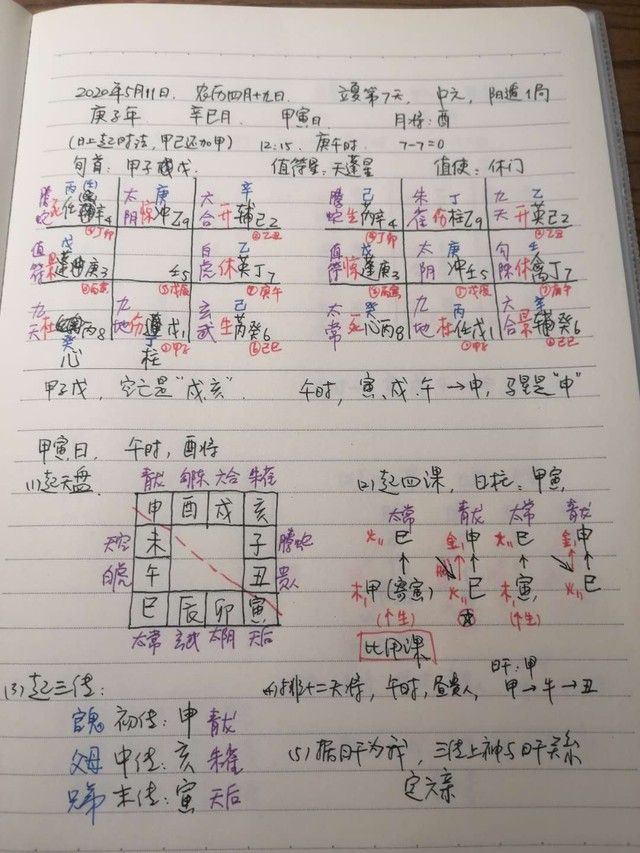 2020年5月11日. 农历四月十九日. 立夏第7天, 中元, 阴遁1局
庚子年 辛巳月 甲寅日 月将:酉
(日上起时法, 甲己还加甲) 12:15. 庚午时 7-7=0
旬首: 甲子戊. 值符星: 天蓬星 值使: 休门
腾蛇 丙 死 任 辛4 ④丁卯
太阴 庚 惊 冲 乙9
六合 辛 开 辅 己2
值符 戊 蓬 庚3
壬5
白虎 乙 休 英 丁7 ⑦庚午
九天 杜 丙8 心
九地 丁 伤 戊1 柱
玄武 己 生 芮 癸6 ⑥己巳
腾蛇 己 生 芮 辛4 ④丁卯
朱雀 丁 伤 柱 乙9
九天 乙 开 英 己2
值符 戊 惊 蓬 庚3
太阴 庚 冲 壬5
勾陈 壬 休 禽 丁7 ⑦庚午
太常 癸 死 心 丙8
九地 丙 杜 任 戊1
六合 辛 景 辅 癸6
甲子戊, 空亡是"戌.亥". 午时, 寅、戌.午→申, 马星是"申"
甲寅日. 午时, 酉将
(1)起天盘.
青龙 勾陈 六合 朱雀
申 酉 戌 亥
天空 未 子 腾蛇
白虎 午 丑 贵人
巳 辰 卯 寅
太常 玄武 太阴 天后
(2)起四课, 日柱: 甲寅
太常 青龙 太常 青龙
火 巳 金 申 火 巳 金 申
木 甲(寄寅) 火 巳 木 寅 火 巳
(个生) (个生)
比用课
(3)起三传:
官鬼 初传: 申 青龙
父母 中传: 亥 朱雀
兄弟 末传: 寅 天后
(4)排十二天将, 午时, 昼贵人, 日干: 甲
甲→牛→丑
(5)据日干为我, 三传上神与日干关系
定六亲